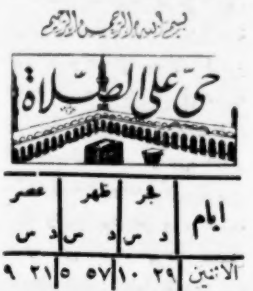 بسم الله الرحمن الرحيم
حي على الصلاة
ايام فجر ظهر عصر
د س د س د س
الاثنين ٢٩ ١٠ ٥٧ ٥ ٢١ ٩